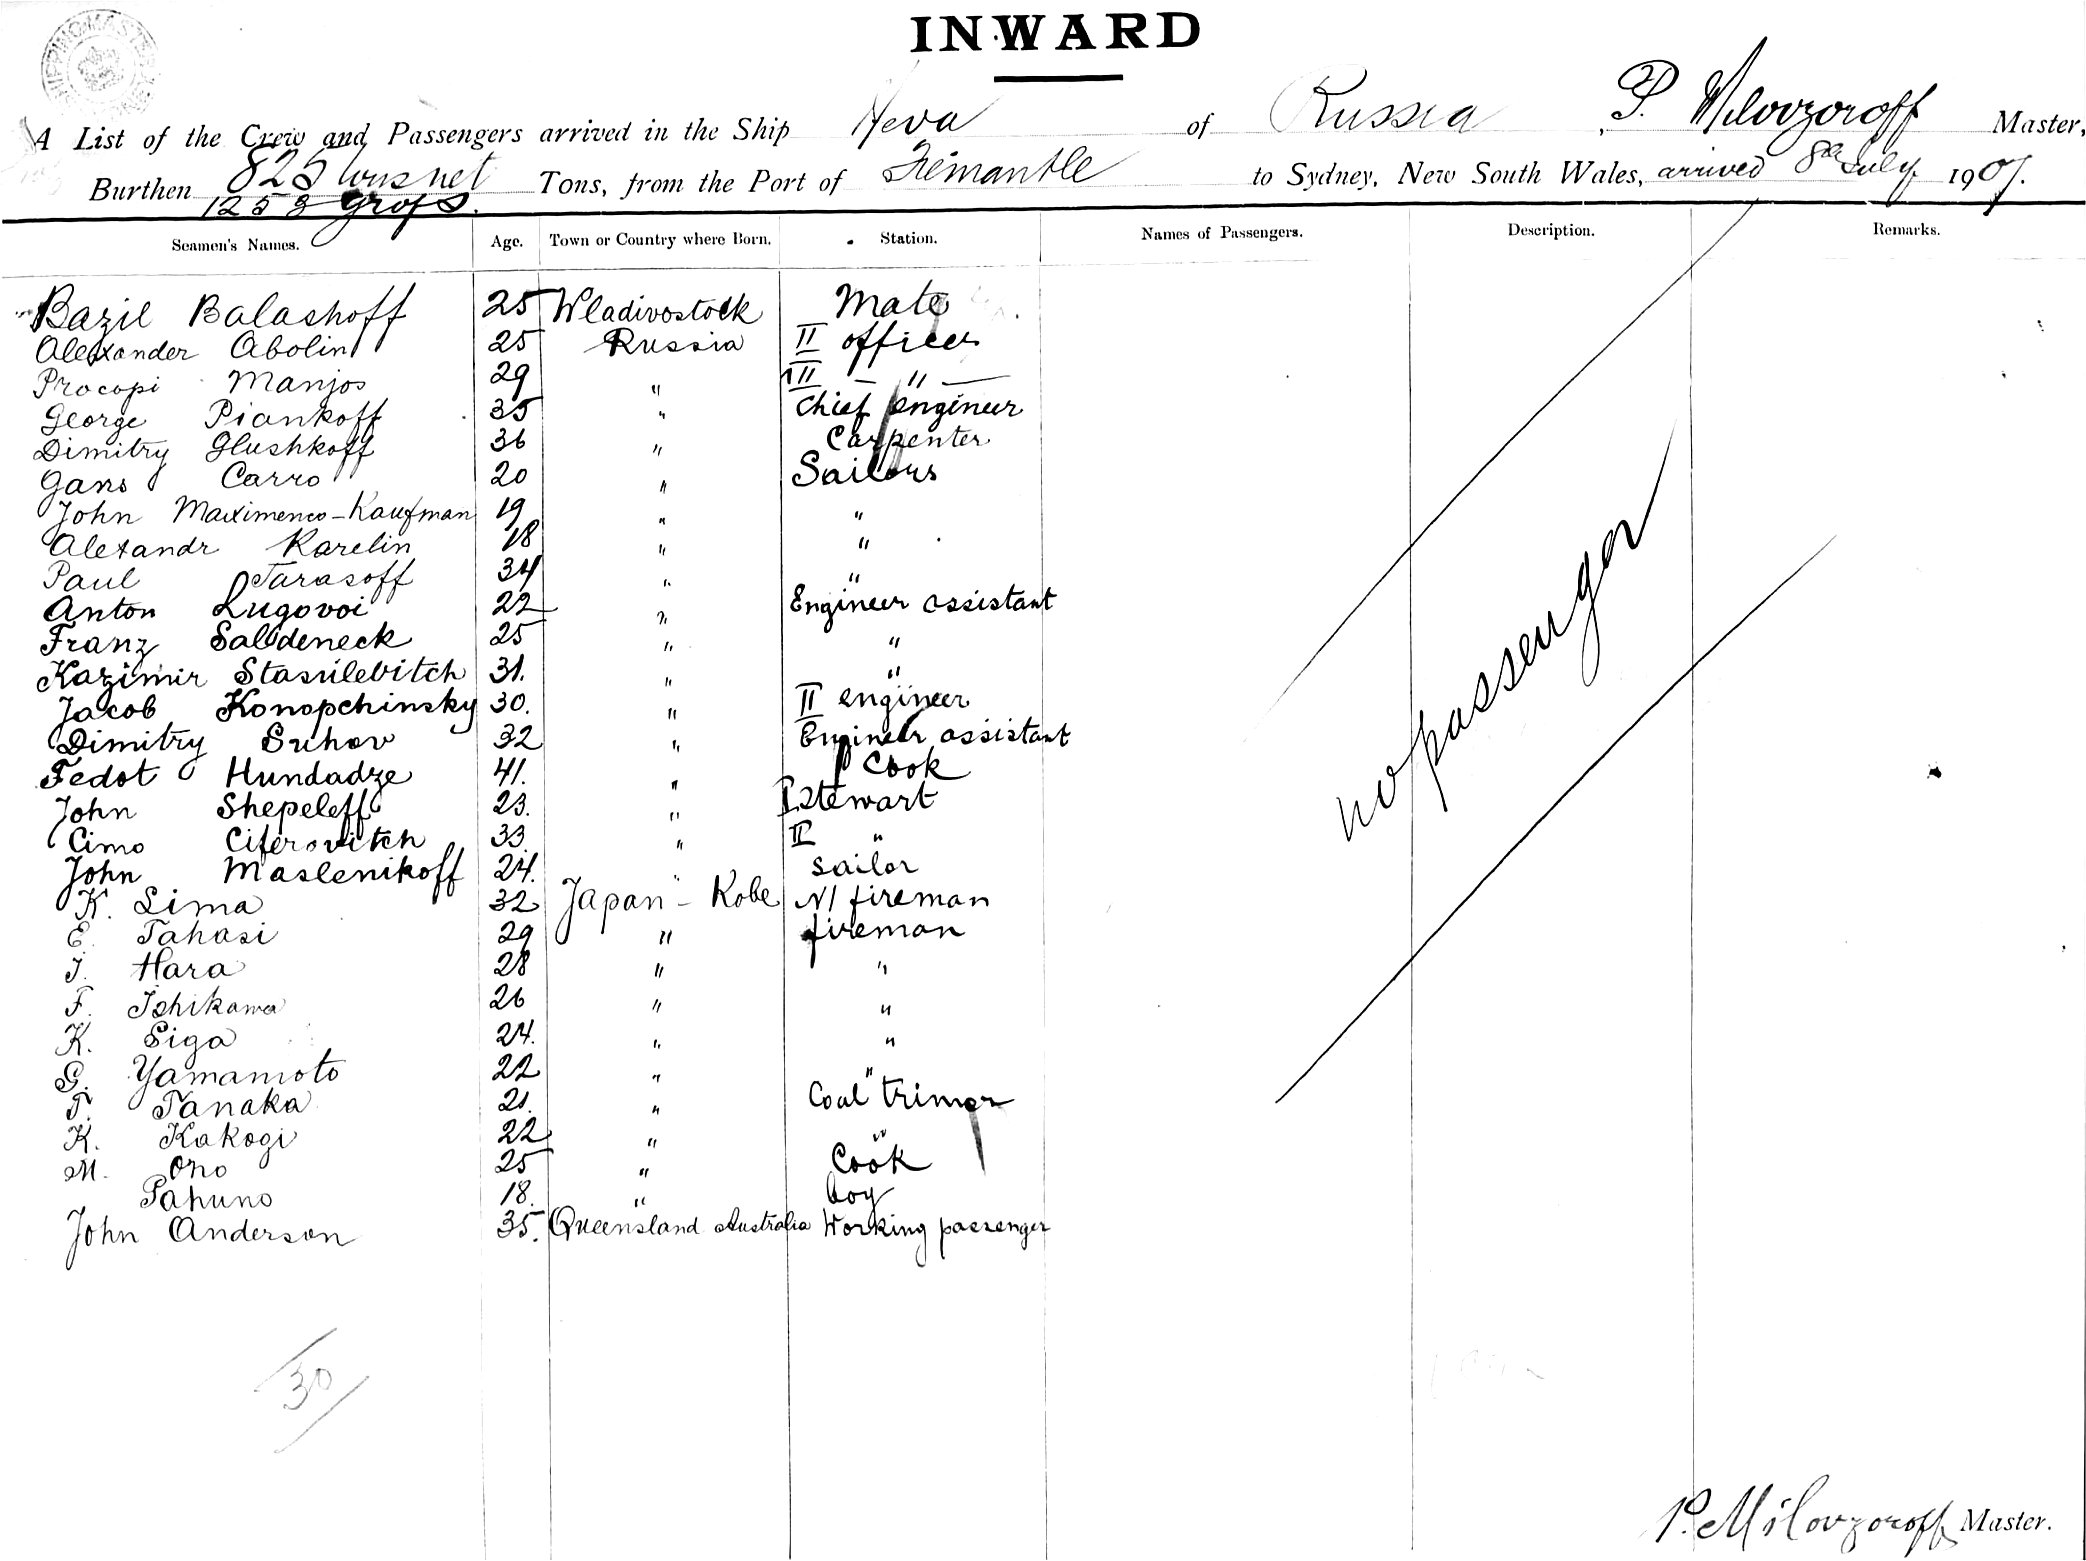 INWARD
A List of the Crew and Passengers arrived in the Ship Neva of Russia, P. Milovzoroff Master,
Burthen 825 tons net Tons, from the Port of Fremantle to Sydney, New South Wales, arrived 8th July 1907.
1253 gross.
Seamen's Names. Age. Town or Country where Born. Station. Names of Passengers. Description. Remarks.
Bazil Balashoff 25 Wladivostock Mate
Alexander Abolin 25 Russia II officer
Procopi Manjos 29 " III — " —
George Piankoff 35 " Chief engineer
Dimitry Glushkoff 36 " Carpenter
Gans Carro 20 " Sailors
John Maximenco-Kaufman 19 " "
Alexandr Karelin 18 " "
Paul Tarasoff 34 " "
Anton Lugovoi 22 " Engineer assistant
Franz Saldeneck 25 " "
Kazimir Stasulevitch 31. " "
Jacob Konopchinsky 30. " II engineer
Dimitry Suhov 32 " Engineer assistant
Fedot Hundadze 41. " Cook
John Shepeleff 23. " I Stewart
Cimo Ciferovitch 33. " II "
John Maslenikoff 24. " Sailor
K. Sima 32 Japan - Kobe N1 fireman
E. Tahasi 29 " fireman
J. Hara 28 " "
F. Ishikawa 26 " "
K. Siga 24. " "
G. Yamamoto 22 " "
T. Tanaka 21. " Coal trimer
K. Kakogi 22 " "
M. Ono 25 " Cook
Pahuno 18. " boy
John Anderson 35. Queensland Australia Working passenger
no passenger
30
P. Milovzoroff Master.